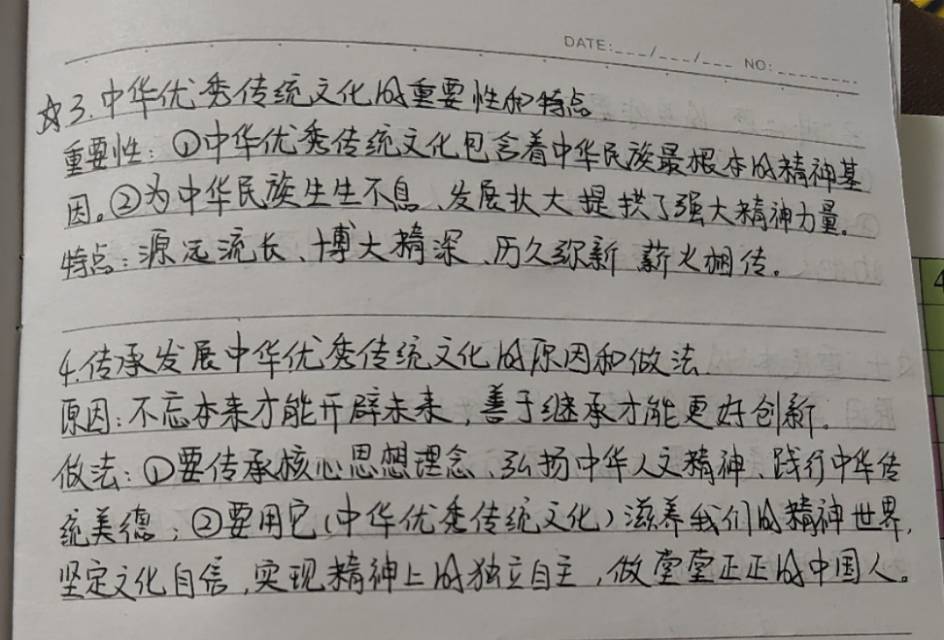 DATE:___/___/___ NO:________
☆3.中华优秀传统文化的重要性和特点
重要性：①中华优秀传统文化包含着中华民族最根本的精神基
因。②为中华民族生生不息、发展壮大提供了强大精神力量。
特点：源远流长、博大精深、历久弥新 薪火相传。
4.传承发展中华优秀传统文化的原因和做法
原因：不忘本来才能开辟未来，善于继承才能更好创新。
做法：①要传承核心思想理念、弘扬中华人文精神、践行中华传
统美德；②要用它（中华优秀传统文化）滋养我们的精神世界，
坚定文化自信，实现精神上的独立自主，做堂堂正正的中国人。
4